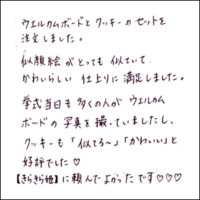 ウエルカムボードとクッキーのセットを
注文しました。
似顔絵がとっても似ていて
かわいらしい仕上りに満足しました。
挙式当日も多くの人がウエルカム
ボードの写真を撮っていましたし、
クッキーも「似てる〜」「かわいい」と
好評でした♡
【きらきら姫】に頼んでよかったです♡♡♡